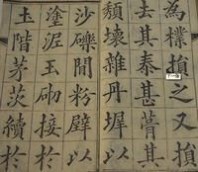 為樸損之又損
去其泰甚葺其
頹壞雜丹墀以
沙礫間粉壁以
塗泥玉砌接於
土階茅茨續於